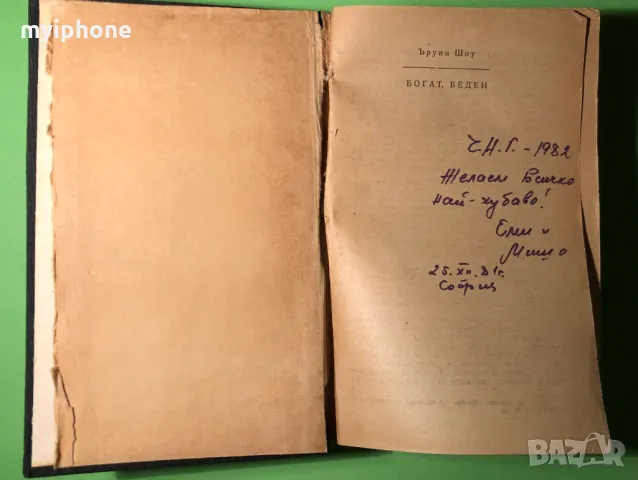 myiphone
Ъруин Шоу
БОГАТ, БЕДЕН
Ч.Н.Г. - 1982
Желаем всичко
най-хубаво!
Ели и
Мишо
25.XII.81г.
София
BAZAR